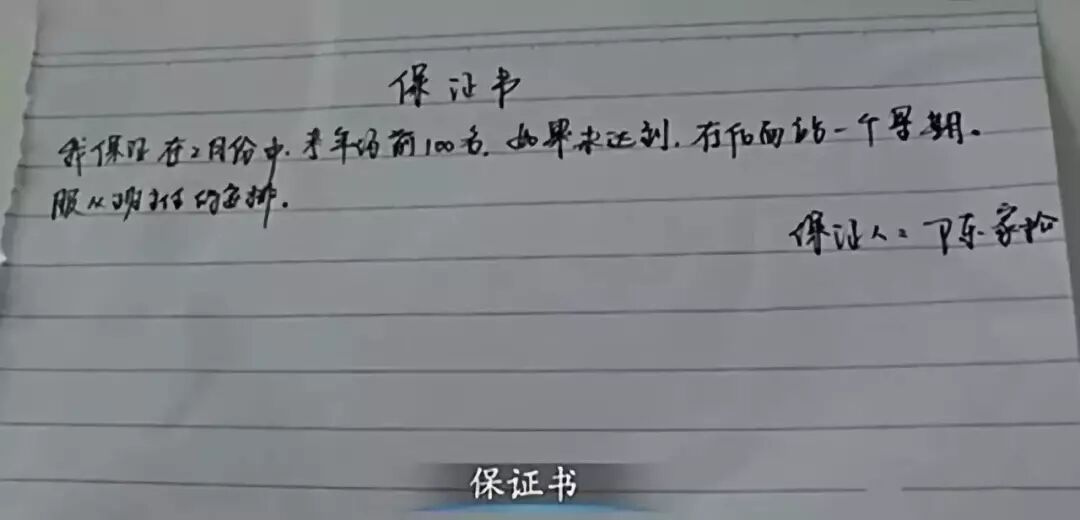 保证书
我保证在2月份中.考年级前100名.如果未达到.在后面站一个学期。
服从班主任的安排.
保证人：陈家
保证书